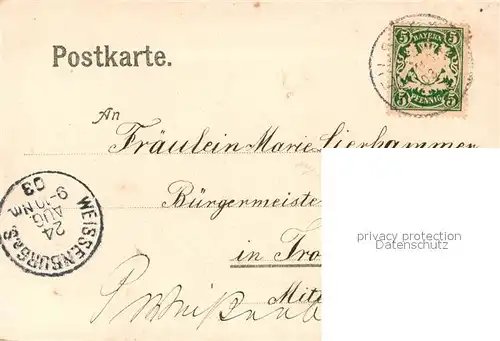 Postkarte.
5 BAYERN 5
5 PFENNIG 5
An
Fräulein Marie Lierhammer
Bürgermeiste
in Tro
Mitt
P. Weißenb
WEISSENBURG a. S.
24
AUG
9-10 Nm.
03
privacy protection
Datenschutz